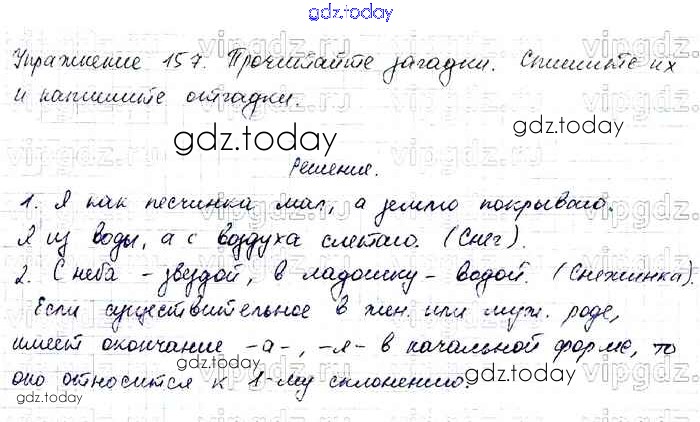 gdz.today
Упражнение 157. Прочитайте загадки. Спишите их
и напишите отгадки.
gdz.today
gdz.today
Решение.
1. Я как песчинка мал, а землю покрываю.
Я из воды, а с воздуха слетаю. (Снег).
2. С неба - звездой, в ладошку - водой. (Снежинка).
Если существительное в жен. или муж. роде,
имеет окончание -а-, -я- в начальной форме, то
оно относится к 1-му склонению.
gdz.today
gdz.today
vipgdz.ru